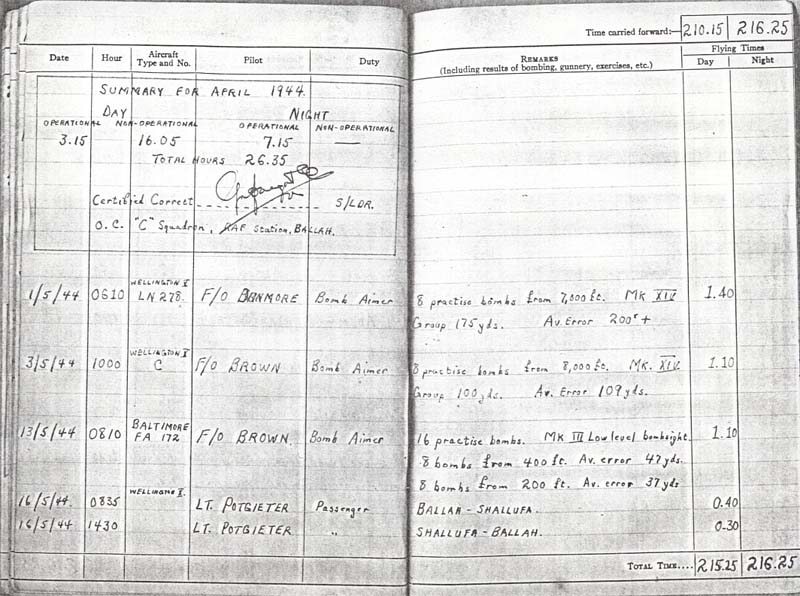 Time carried forward:— 210.15 216.25
Date Hour Aircraft Type and No. Pilot Duty REMARKS (Including results of bombing, gunnery, exercises, etc.) Flying Times Day Night
SUMMARY FOR APRIL 1944.
DAY NIGHT
OPERATIONAL NON-OPERATIONAL OPERATIONAL NON-OPERATIONAL
3.15 16.05 7.15 —
TOTAL HOURS 26.35
Certified Correct S/LDR.
O.C. "C" Squadron, RAF Station, BALLAH.
1/5/44 0610 WELLINGTON LN 278. F/O BENMORE Bomb Aimer 8 practise bombs from 7,000 ft. MK XIV 1.40
Group 175 yds. Av. Error 200 +
3/5/44 1000 WELLINGTON C F/O BROWN Bomb Aimer 8 practise bombs from 8,000 ft. MK. XIV. 1.10
Group 100 yds. Av. Error 109 yds.
13/5/44 0810 BALTIMORE FA 172 F/O BROWN. Bomb Aimer 16 practise bombs. MK III Low level bombsight. 1.10
8 bombs from 400 ft. Av. error 47 yds.
8 bombs from 200 ft. Av. error 37 yds
16/5/44. 0835 WELLINGTON LT. POTGIETER Passenger BALLAH - SHALLUFA. 0.40
16/5/44 1430 LT. POTGIETER " SHALLUFA - BALLAH. 0.30
TOTAL TIME.... 215.25 216.25